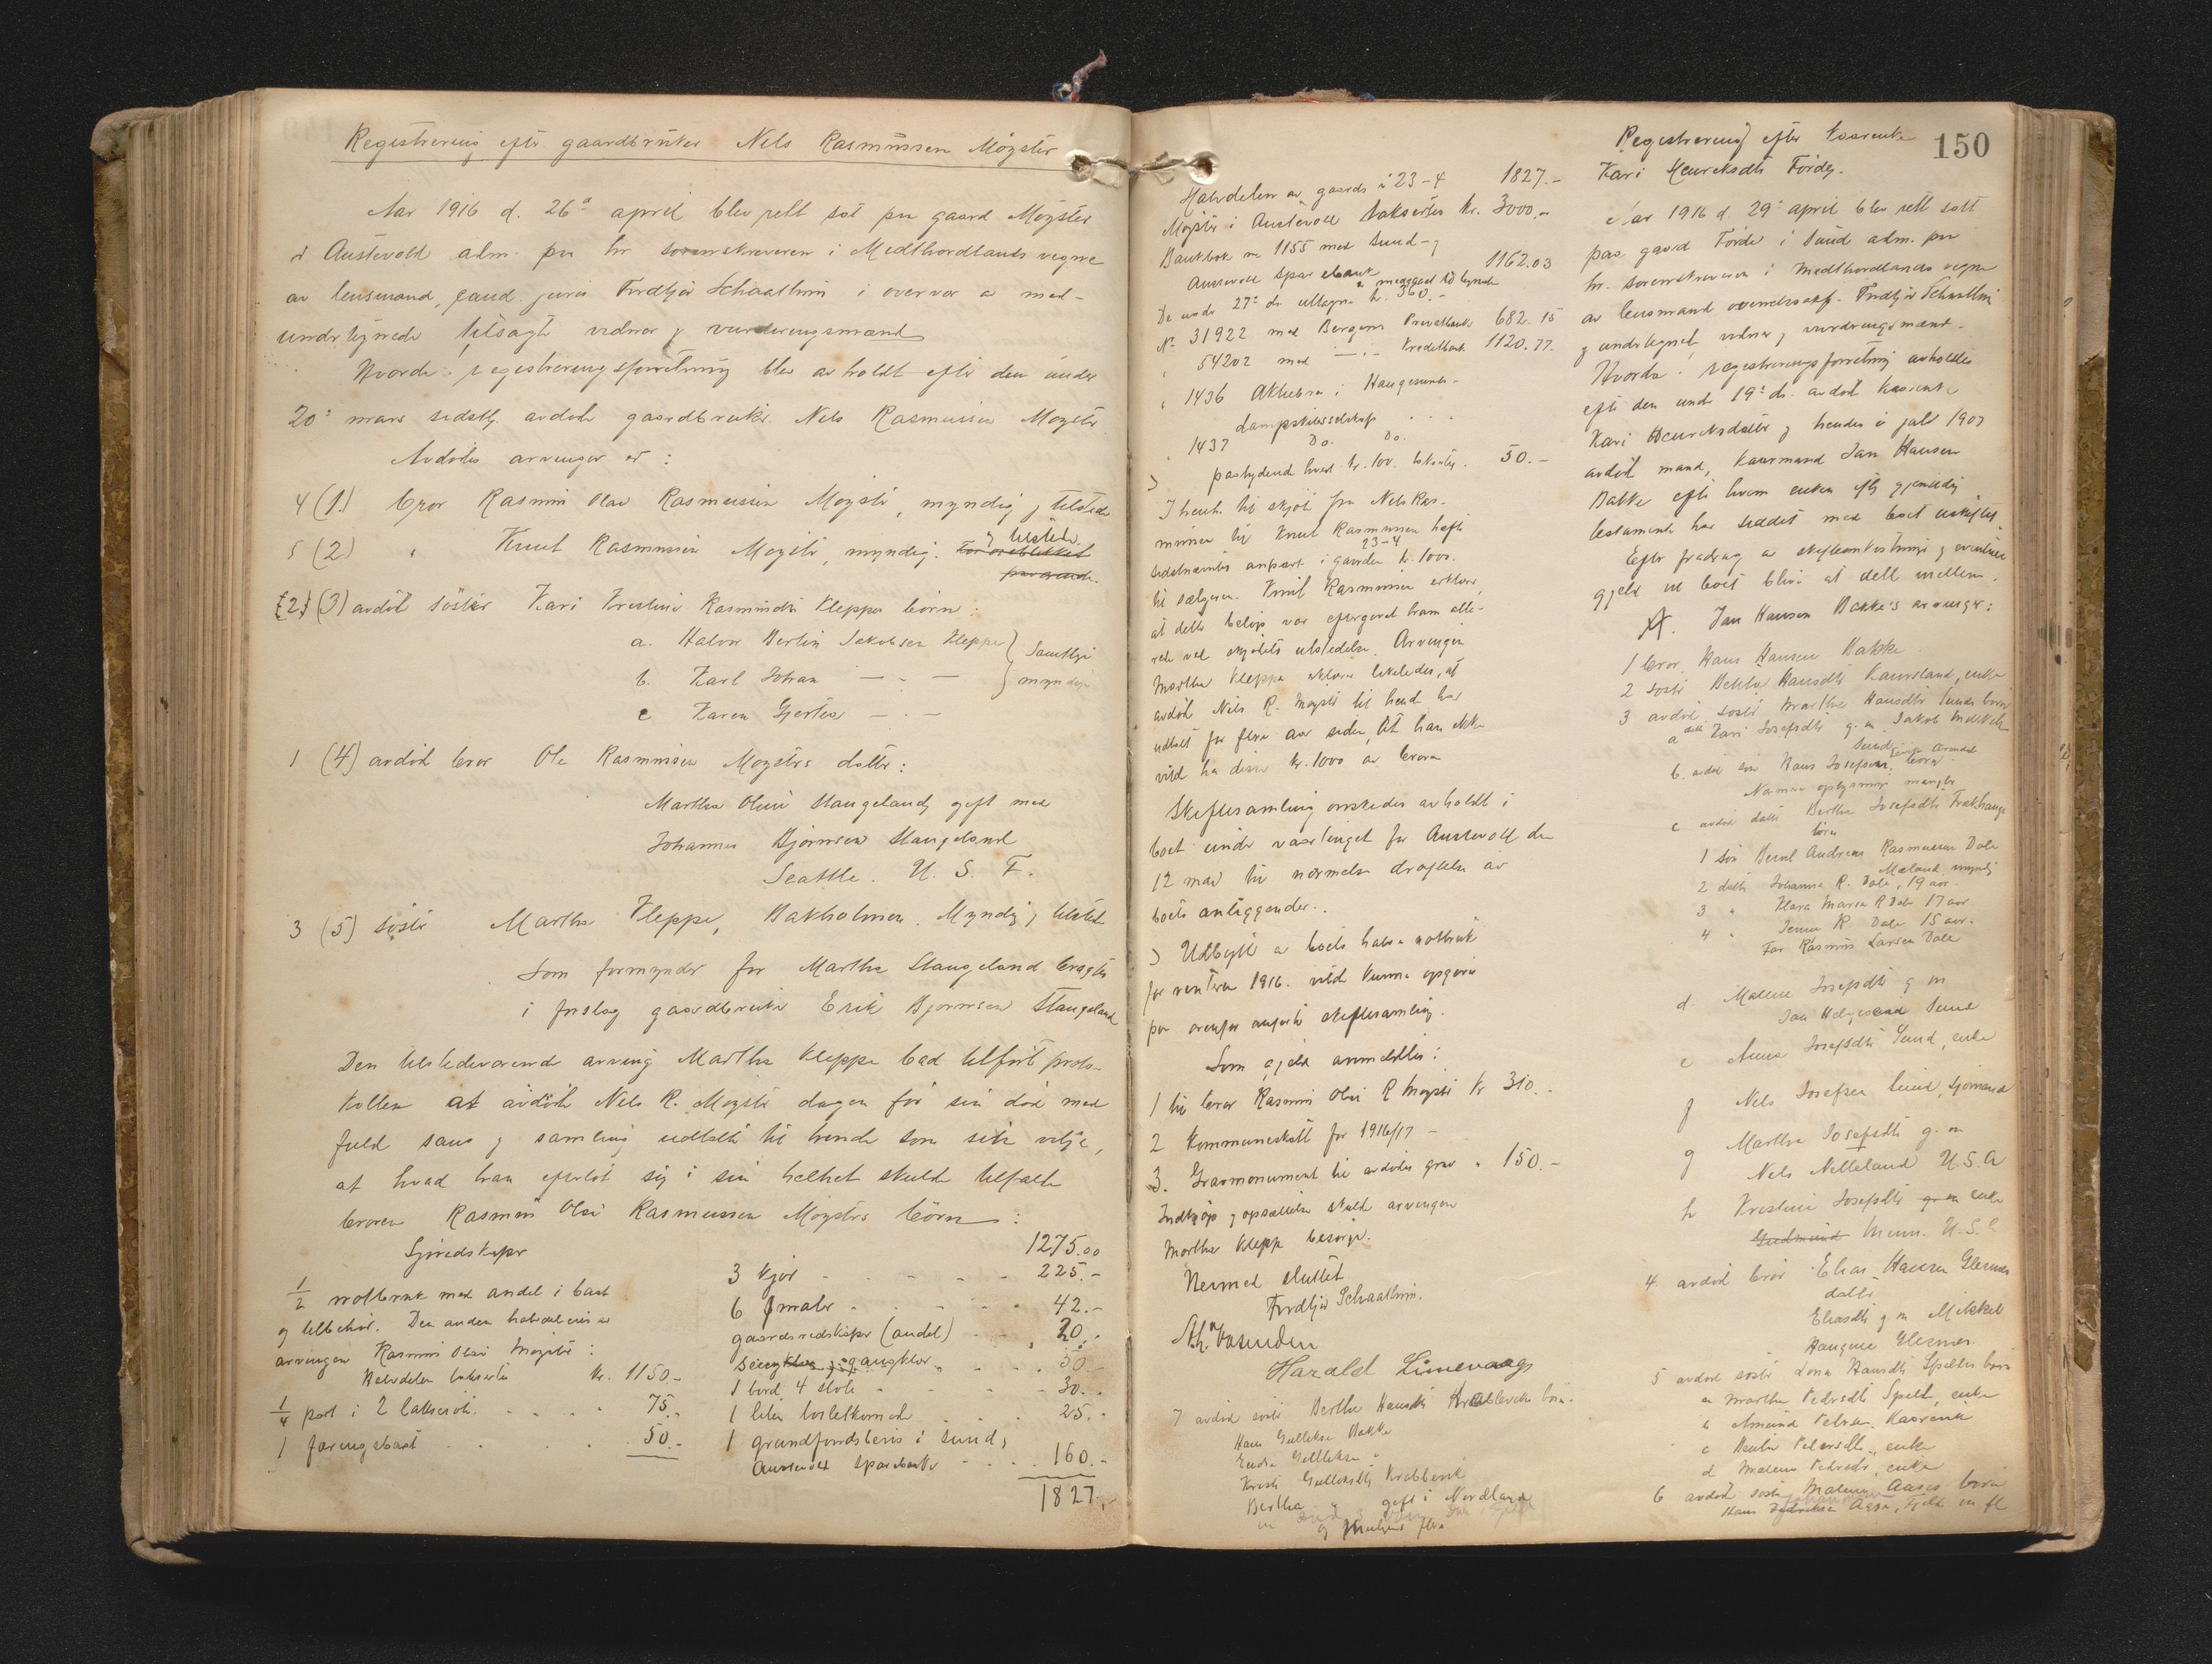 Registrering eftr gaardbruker Nils Rasmussen Møgster
Aar 1916 d. 26. april blev rett sat paa gaard Møgster
i Austevold adm. paa hr sorenskriveren i Midthordlands vegne
av lensmand, cand. juris Fredtjov Schaathun i overvær av med-
undertegnede tilsagte vidner og vurderingsmænd
Hvorda: registreringsforretning blev avholdt efter den under
20: mars sidstl. avdøde gaardbruker Nils Rasmussen Møgster
Avdødes arvinger er:
4 (1.) bror Rasmus Olai Rasmussen Møgster, myndig, tilstede
5 (2) " Knut Rasmussen Møgster, myndig. og tilstede
For øieblikket
fraværende.
{2} (3) avdød søster Kari Kristine Rasmusdtr Kleppe børn:
a. Halvor Bertin Jakobsen Kleppe } Samtlige
b. Karl Johan — " — } myndige
c Karen Gjertea — " —
1 (4) avdød bror Ole Rasmussen Møgsters datter:
Martha Oline Stangeland, gift med
Johannes Bjørnsen Stangeland
Seattle. U. S. F.
3 (5) søster Martha Kleppe, Bakholmen. Myndig, tilstede
Som formynder for Martha Stangeland bragtes
i forslag gaardbruker Erik Bjørnsen Stangeland
Den tilstedeværende arving Martha Kleppe bad tilført proto-
kollen at avdøde Nils R. Møgster dagen før sin død med
fuld sans og samling udtalte til hende som sin vilje,
at hvad han efterlot sig i sin helhet skulde tilfalde
broren Rasmus Olai Rasmussen Møgsters børn:
Sjøredskaper
1/2 notbruk med andel i baat
og tilbehør. Den anden halvdel eies av
arvingen Rasmus Olai Møgster:
Halvdelen taksertes kr. 1150.-
1/4 part i 2 laksenøter. 75.-
1 færingsbaat 50.-
1275.00
3 kjør 225.-
6 smaler 42.-
gaardsredskaper (andel) 20.-
Sengklær, gangklær 50.-
1 bord, 4 stole 30.-
1 liten toiletkomode 25.-
1 grundfondsbevis i Sund og
Austevold Sparebank 160.-
1827.-
1827.-
Halvdelen av gaards nr 23-4
Møgster i Austevold taksertes kr. 3000.-
Bankbok nr 1155 med Sund- og
Austevold Sparebank 1162.03
De under 27: ds. uttagne kr. 360.-
No 31922 med Bergens Privatbank 682.15
" 54202 med — " — Kreditbank 1120.77.
" 1436 Aktiebrev i Haugesunds-
Dampskibsselskap
" 1437 Do. Do.
paalydende hvert kr. 100. takseres. 50.-
I henh. til skjøte fra Nils Ras-
mussen til Knut Rasmussen hefter
23-4
sidstnævntes anpart i gaarden kr. 1000.
til sælgeren. Knut Rasmussen erklærer,
at dette beløp var eftergivet ham alle-
rede ved skjøtets utstedelse. Arvingen
Martha Kleppe erklærer likeledes, at
avdød Nils R. Møgster til hende har
udtalt for flere aar siden, at han ikke
vild ha disse kr. 1000 av broren
Skiftesamling ønskedes avholdt i
boet under vaartinget for Austevold den
12 mai til nærmere drøftelse av
boets anliggender.
Utbyttet av boets halve notbruk
for vinteren 1916. vilde kunne opgives
paa ovenfor anførte skiftesamling.
Som gjeld anmeldtes:
1 til bror Rasmus Olai R Møgster kr 310.-
2 Kommuneskatt for 1916/17 -
3. Gravmonument til avdødes grav " 150.-
Indkjøp og opsættelse skulde arvingen
Martha Kleppe besørge.
Hermed sluttet
Fredtjov Schaathun.
Harald Limevaag
7 avdød søster Berthe Hansdtr Krabbevik børn.
Hans Gulleksen Bakke
Endre Gulleksen "
Kristi Gulleksdtr Krabbevik
Bertha " gift i Nordland
og muligens flere
150
Registrering efter kaarenke
Kari Henriksdtr Førde.
Aar 1916 d. 29: april blev rett satt
paa gaard Førde i Sund adm. paa
hr. sorenskriveren i Midthordlands vegne
av lensmand ovennævnte. Fredtjov Schaathun
og undertegnet, vidner og vurderingsmænd.
Hvorda: registreringsforretning avholdtes
efter den under 19: ds. avdød kaarenke
Kari Henriksdatter og hendes i juli 1907
avdød mand, kaarmand Jan Hansen
Bakke efter hvem enken iflg gjensidig
testamente har siddet med boet uskiftet.
Efter fradrag av skifteomkostninger og eventuel
gjeld vil boet blive at dele mellem.
A. Jan Hansen Bakke's arvinger:
1 bror Hans Hansen Bakke
2 søster Hansdtr Kausland, enke
3 avdød søster Marthe Hansdtr Sunds børn
a datt. Kari Josefsdtr g. m. Jakob Mikkels
Sund
b. avdød søn Hans Josefsen børn
Nærmere oplysninger mangler
c avdød datter Berthe Josefsdtr Trækhauge
børn
1 søn Bernt Andreas Rasmussen Dale
Mæland, myndig
2 datter Johanna R. Dale, 19 aar.
3 " Klara Maria R Dale 17 aar
4 " Jenny R. Dale 15 aar.
Far Rasmus Larsen Dale
d. Malene Josefsdtr g m
Jan Helgesen Sund
e Anna Josefsdtr Sund, enke
f Nils Josefsen Sund, sjømand
g Martha Josefsdtr g. m
Nils Nelleland U.S.A
h Kristine Josefsdtr g m enke
Minn. U.S.A
4. avdød bror Elias Hansen Glesnes
datter
Eliasdtr g m Mikkel
Haugene Glesnes.
5 avdød søster Lona Hansdtr Spildes børn
a Martha Pedersdtr Spild, enke
b Amund Pedersen Kaarevik
c Pedersdtr, enke
d Malene Pedersdtr, enke
6 avdød søster Malene Aases børn
Hans Aase, Fjeld m fl